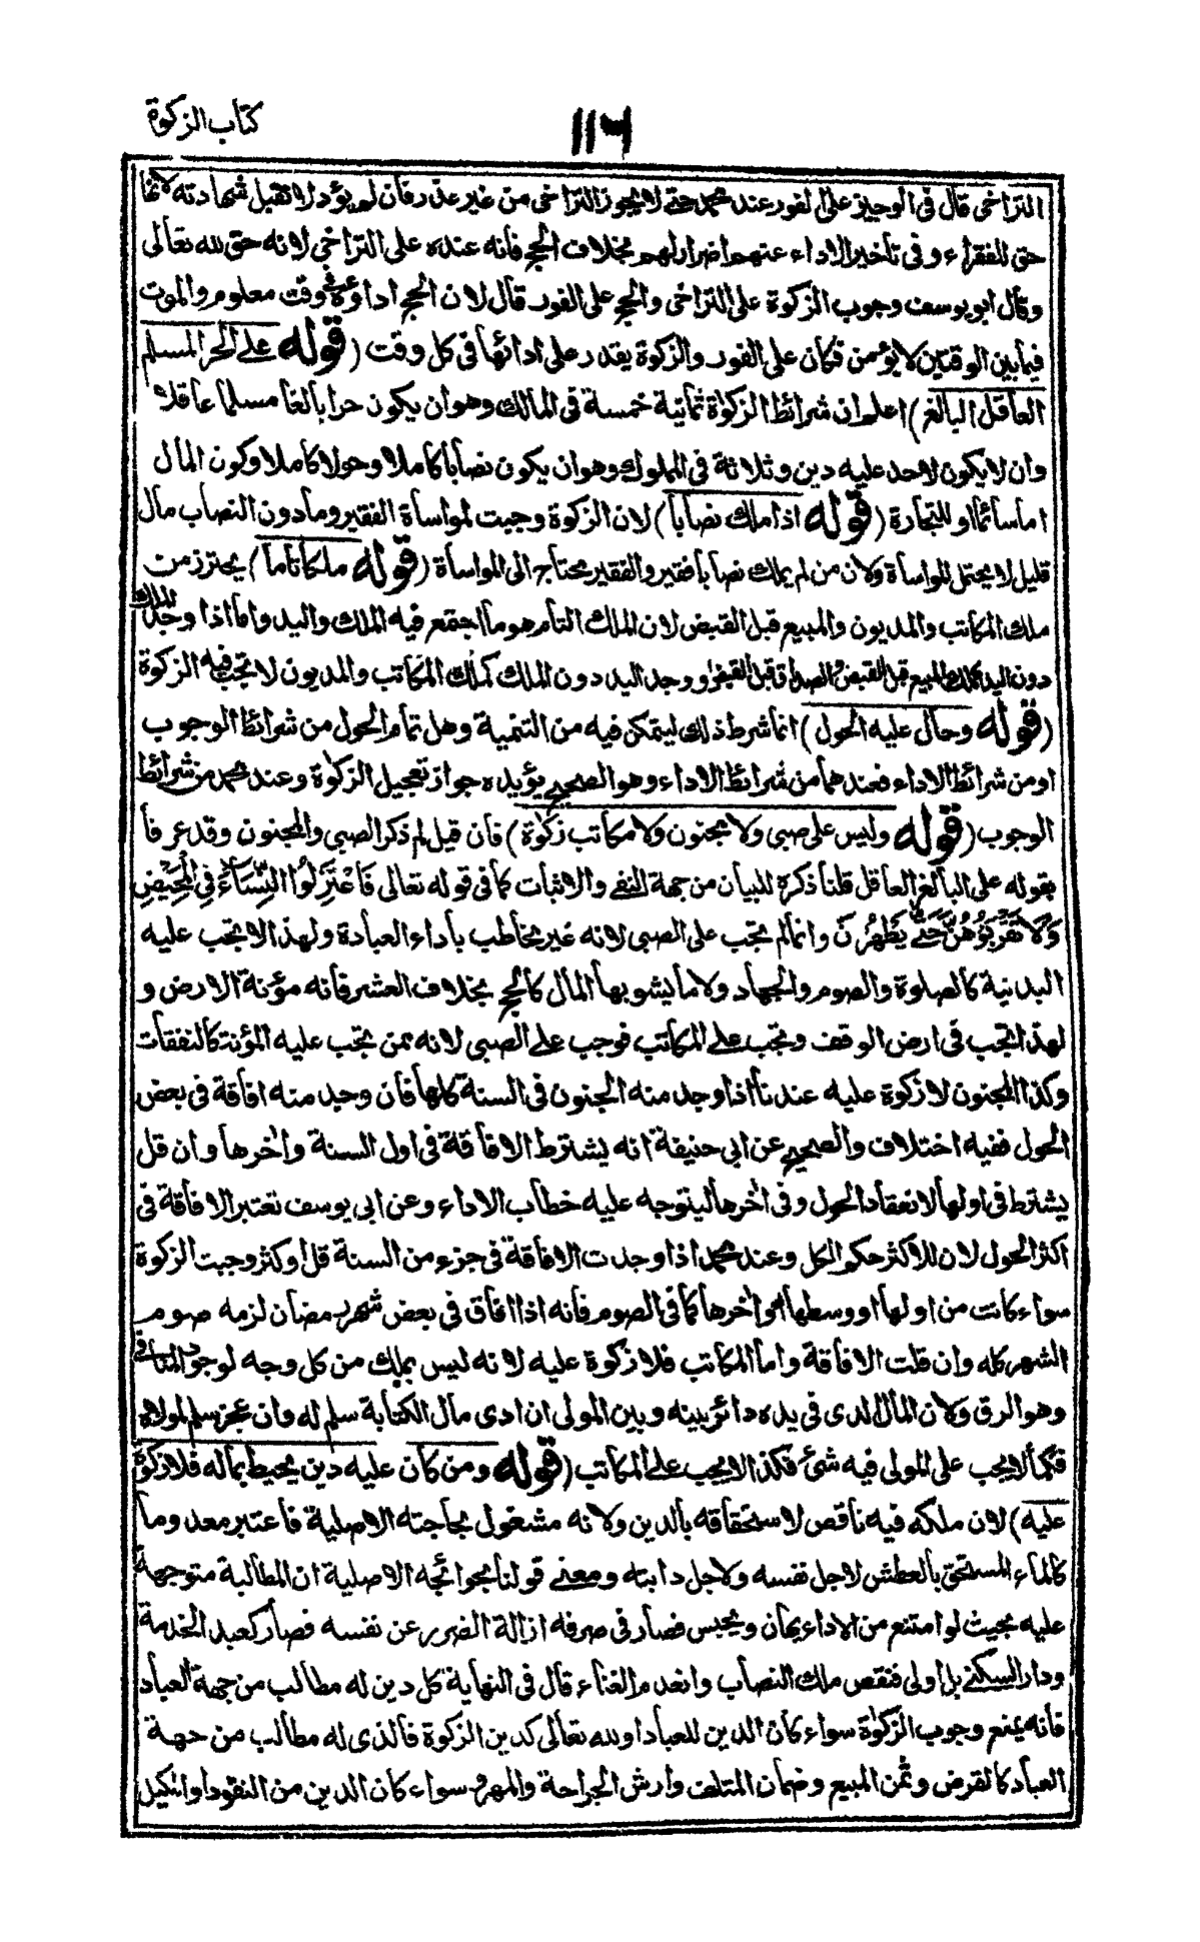 كتاب الزكوة
١١٦
التراخى قال فى الوجيز على الفور عند محمد حتى لا يجوز التراخى من غير عذر فان لم يؤد لا تقبل شهادته لانها
حق للفقراء وفى تاخير الاداء عنهم اضرار لهم بخلاف الحج فانه عنده على التراخى لانه حق لله تعالى
وقال ابو يوسف وجوب الزكوة على التراخى والحج على الفور قال لان الحج اداؤه فى وقت معلوم والموت
فيما بين الوقتين لا يؤمن فكان على الفور والزكوة يقدر على ادائها فى كل وقت (قوله على الحر المسلم
العاقل البالغ) اعلم ان شرائط الزكوة ثمانية خمسة فى المالك وهو ان يكون حرا بالغا مسلما عاقلا
وان لا يكون لاحد عليه دين وثلاثة فى المملوك وهو ان يكون نصابا كاملا وحولا كاملا وكون المال
اما سائما او للتجارة (قوله اذا ملك نصابا) لان الزكوة وجبت لمواساة الفقير وما دون النصاب مال
قليل لا يحتمل المواساة ولان من لم يملك نصابا فقير والفقير محتاج الى المواساة (قوله ملكا تاما) يحترز من
ملك المكاتب والمديون والمبيع قبل القبض لان الملك التام هو ما اجتمع فيه الملك واليد واما اذا وجد الملك
دون اليد كملك المبيع قبل القبض والصداق قبل القبض او وجد اليد دون الملك كملك المكاتب والمديون لا تجب فيه الزكوة
(قوله وحال عليه الحول) انما شرط ذلك ليتمكن فيه من التنمية وهل تمام الحول من شرائط الوجوب
او من شرائط الاداء فعندهما من شرائط الاداء وهو الصحيح يؤيده جواز تعجيل الزكوة وعند محمد من شرائط
الوجوب (قوله وليس على صبى ولا مجنون ولا مكاتب زكوة) فان قيل لم ذكر الصبى والمجنون وقد عرفا
بقوله على البالغ العاقل قلنا ذكره للبيان من جهة النفى والاثبات كما فى قوله تعالى فَاعْتَزِلُوا النِّسَاءَ فِى الْمَحِيْضِ
وَلَا تَقْرَبُوْهُنَّ حَتّٰى يَطْهُرْنَ وانما لم تجب على الصبى لانه غير مخاطب باداء العبادة ولهذا لا تجب عليه
البدنية كالصلوة والصوم والجهاد ولا ما يشوبها المال كالحج بخلاف العشر فانه مؤنة الارض و
لهذا تجب فى ارض الوقف وتجب على المكاتب فوجب على الصبى لانه ممن تجب عليه المؤنت كالنفقات
وكذا المجنون لا زكوة عليه عندنا اذا وجد منه الجنون فى السنة كلها فان وجد منه افاقة فى بعض
الحول ففيه اختلاف والصحيح عن ابى حنيفة انه يشترط الافاقة فى اول السنة واٰخرها وان قل
يشترط فى اولها لانعقاد الحول وفى اٰخرها ليتوجه عليه خطاب الاداء وعن ابى يوسف تعتبر الافاقة فى
اكثر الحول لان للاكثر حكم الكل وعند محمد اذا وجدت الافاقة فى جزء من السنة قل او كثر وجبت الزكوة
سواء كانت من اولها او وسطها او اٰخرها كما فى الصوم فانه اذا افاق فى بعض شهر رمضان لزمه صوم
الشهر كله وان قلت الافاقة واما المكاتب فلا زكوة عليه لانه ليس بملك من كل وجه لوجود المنافى
وهو الرق ولان المال الذى فى يده دائر بينه وبين المولى ان ادى مال الكتابة سلم له وان عجز سلم لمولاه
فكما لا يجب على المولى فيه شئ فكذا لا يجب على المكاتب (قوله ومن كان عليه دين يحيط بماله فلا زكوة
عليه) لان ملكه فيه ناقص لاستحقاقه بالدين ولانه مشغول بحاجته الاصلية فاعتبر معدوما
كالماء المستحق بالعطش لاجل نفسه ولاجل دابته ومعنى قولنا بحوائجه الاصلية ان المطالبة متوجهة
عليه بحيث لو امتنع من الاداء يهان ويحبس فصار فى صرفه ازالة الضرر عن نفسه فصار كعبد الخدمة
ودار السكنى بل اولى فنقص ملك النصاب وانعدم الغناء قال فى النهاية كل دين له مطالب من جهة العباد
فانه يمنع وجوب الزكوة سواء كان الدين للعباد او لله تعالى كدين الزكوة فالذى له مطالب من جهة
العباد كالقرض وثمن المبيع وضمان المتلف وارش الجراحة والمهر وسواء كان الدين من النقود او المكيل